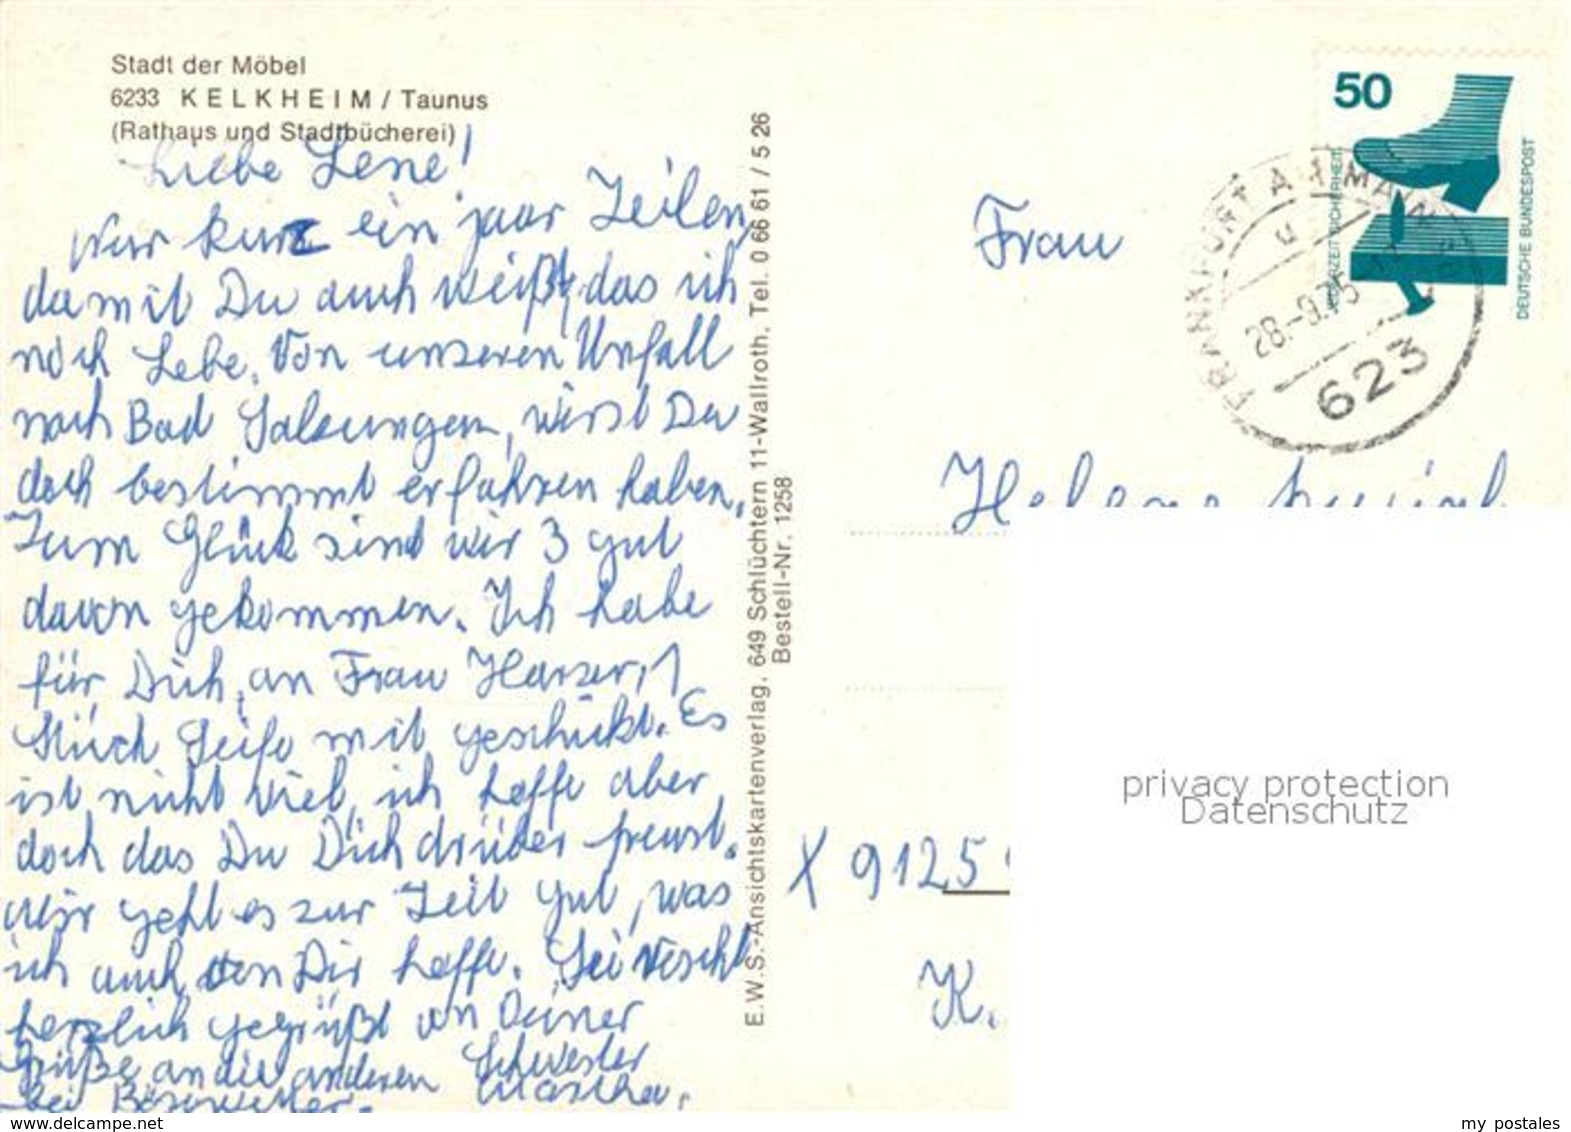 Stadt der Möbel
6233 KELKHEIM / Taunus
(Rathaus und Stadtbücherei)
Liebe Lene!
Nur kurz ein paar Zeilen,
damit Du auch weißt, das ich
noch Lebe. Von unseren Unfall
nach Bad Salzungen, wirst Du
doch bestimmt erfahren haben.
Zum Glück sind wir 3 gut
davon gekommen. Ich habe
für Dich, an Frau Harzer, 1
Stück Seife mit geschickt. Es
ist nicht Viel, ich hoffe aber
doch das Du Dich drüber freust.
Mir geht es zur Zeit gut, was
ich auch von Dir hoffe. Sei
herzlich gegrüßt von Deiner
Schwester
Martha.
Grüße an die anderen
bei
E.W.S.-Ansichtskartenverlag, 649 Schlüchtern 11-Wallroth, Tel. 0 66 61 / 5 26
Bestell-Nr. 1258
50
JEDERZEIT SICHERHEIT
DEUTSCHE BUNDESPOST
FRANKFURT AM MAIN
28.-9.75
623
Frau
Helene
X 9125
K.
privacy protection
Datenschutz
www.delcampe.net
my postales